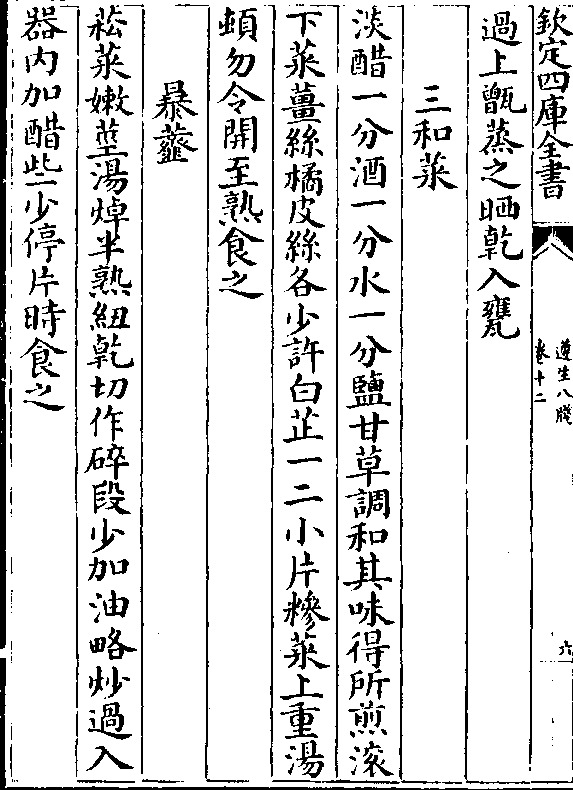 欽定四庫全書
遵生八牋
卷十二
六
過上甑蒸之晒乾入甕
三和菜
淡醋一分酒一分水一分鹽甘草調和其味得所煎滾
下菜薑絲橘皮絲各少許白芷一二小片糝菜上重湯
頓勿令開至熟食之
暴虀
菘菜嫩莖湯焯半熟紐乾切作碎段少加油略炒過入
器内加醋些少停片時食之